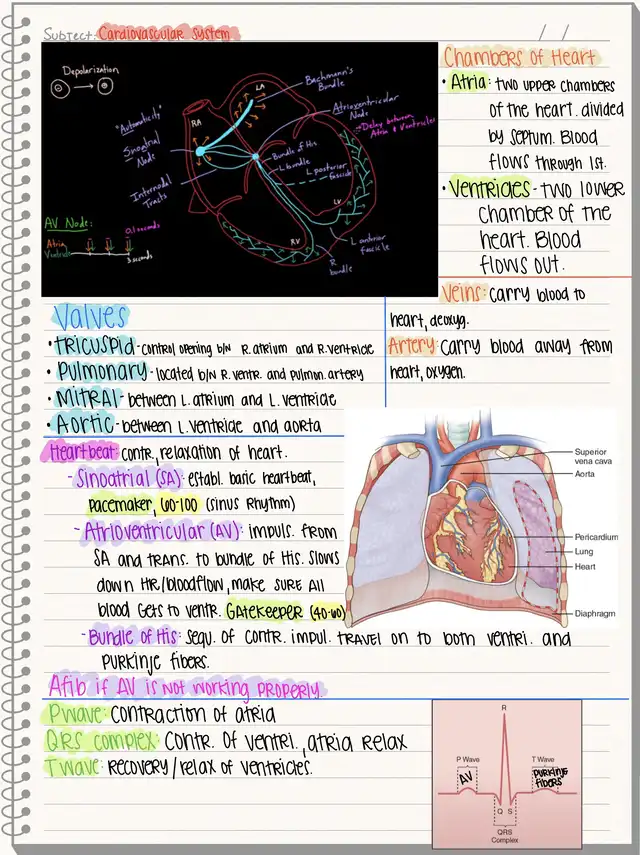 Subject: Cardiovascular System
/ /
Depolarization
LA
Bachmann's
Bundle
RA
"Automaticity"
Sinoatrial
Node
Internodal
Tracts
Atrioventricular
Node
Delay between
Atria & Ventricles
Bundle of His
L bundle
L posterior
fascicle
LV
RV
L anterior
fascicle
R
bundle
AV Node:
0.1 seconds
Atria
Ventricle
3 seconds
Chambers of Heart
• Atria: two upper chambers
of the heart. divided
by septum. Blood
flows through 1st.
• Ventricles - two lower
chamber of the
heart. Blood
flows out.
Veins: carry blood to
heart, deoxyg.
Artery: carry blood away from
heart, oxygen.
Valves
• Tricuspid - control opening b/n R.atrium and R.ventricle
• Pulmonary - located b/n R.ventr. and pulmon.artery
• Mitral - between L.atrium and L.ventricle
• Aortic - between L.ventricle and aorta
Heartbeat: contr, relaxation of heart.
- Sinoatrial (SA): establ. basic heartbeat,
pacemaker, 60-100 (sinus rhythm)
- Atrioventricular (AV): impuls. from
SA and trans. to bundle of His. Slows
down HR/bloodflow, make sure all
blood gets to ventr. Gatekeeper (40-60)
- Bundle of His: sequ. of contr. impul. travel on to both ventri. and
purkinje fibers.
Superior
vena cava
Aorta
Pericardium
Lung
Heart
Diaphragm
Afib if AV is not working properly
Pwave: contraction of atria
QRS complex: contr. of ventri., atria relax
Twave: recovery/relax of ventricles.
R
P Wave
T Wave
AV
purkinje
fibers
Q S
QRS
Complex